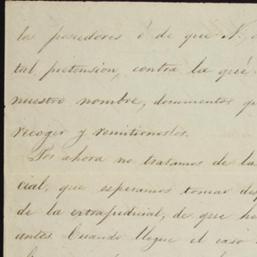 los poseedores ó de que N.
tal pretension, contra la qué
nuestro nombre, documentos qu
recoger y remitirnoslos.
Por ahora no tratamos de la
cial, que esperamos tomar des
de la extrajudicial, de que ha
antes Cuando llegue el caso